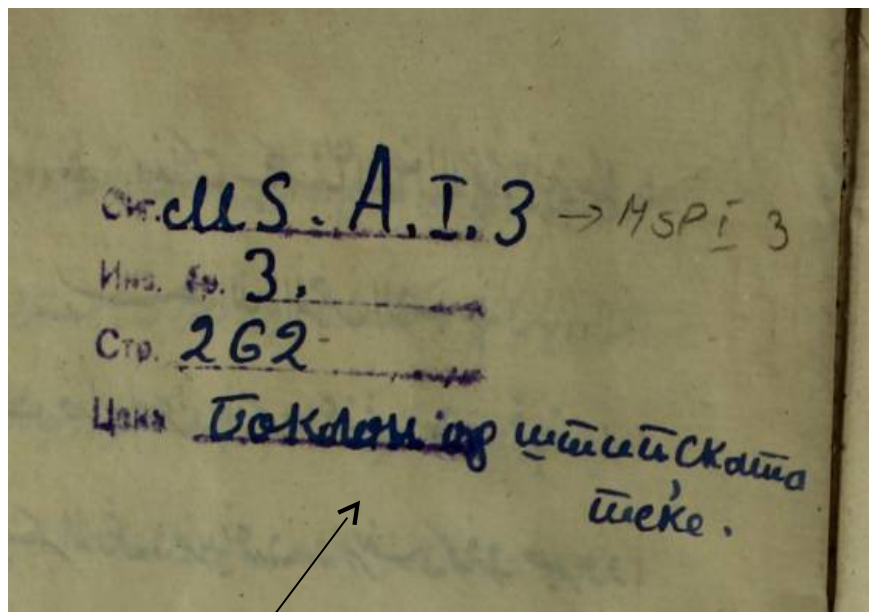 Сиг. MS. A. I. 3 → MSP I 3
Инв. бр. 3.
Стр. 262
Цена Поклон од штипската
теке.